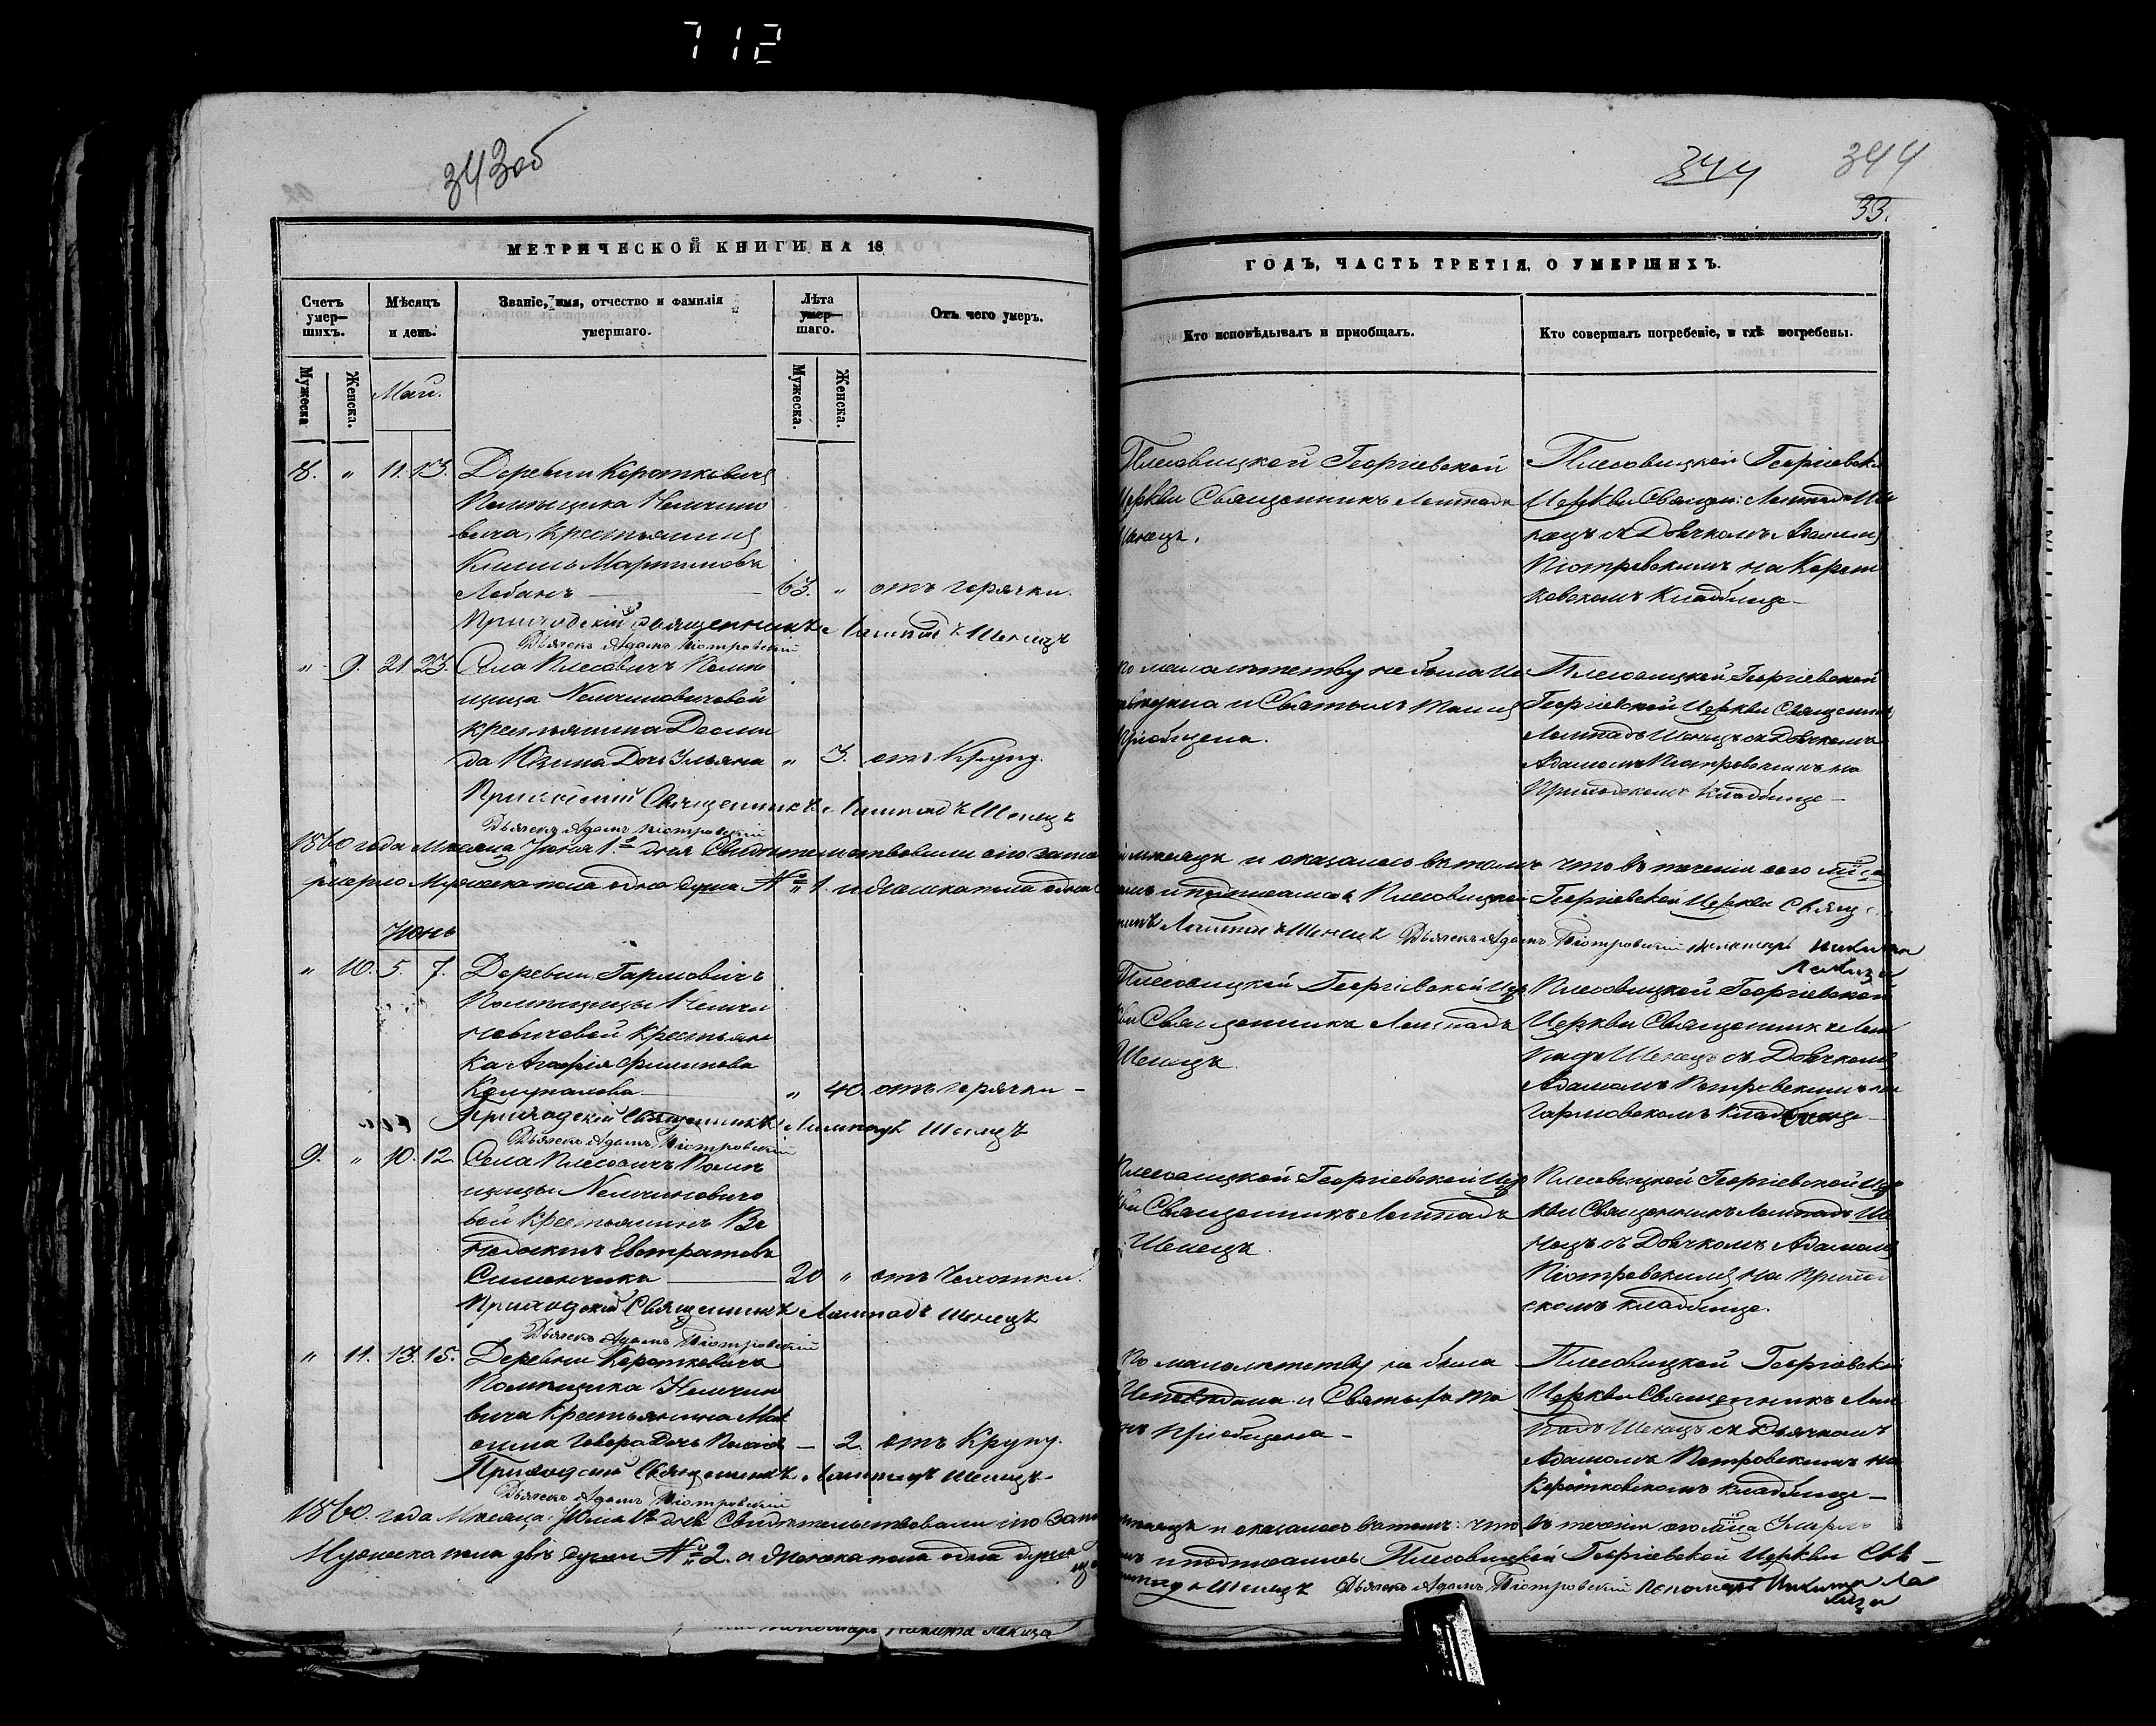 712
343об
344
344
33.
МЕТРИЧЕСКОЙ КНИГИ НА 18
ГОДЪ, ЧАСТЬ ТРЕТІЯ, О УМЕРШИХЪ.
Счетъ умершихъ.
Мѣсяцъ и день.
Званіе, имя, отчество и фамилія умершаго.
Лѣта умершаго.
Отъ чего умеръ.
Кто исповѣдывалъ и приобщалъ.
Кто совершалъ погребеніе, и гдѣ погребены.
Мужеска
Женска.
Мужеска.
Женска.
Май.
8. " 11. 13. Деревни Коротковичъ
Помѣщика Нелчино
вича, крестьянинъ
Климъ Мартиновъ
Лобанъ — 63. " отъ горячки.
Плесовицкой Георгіевской
Церкви Священникъ Лампадъ
Шенецъ.
Плесовицкой Георгіевской
Церкви Священ: Лампадъ Ше
нецъ съ Дьячкомъ Адамомъ
Піотровскимъ на Корот
ковскомъ Кладбище —
Приходскій Священникъ Лампадъ Шенецъ
Дьячекъ Адамъ Піотровскій
" 9. 21. 23. Села Плесовичъ Помѣ
щица Нелчиновичовой
крестьянина
да Юхима Дочь Ульяна " 3. отъ Крупу.
По малолѣтству не была Ис
повѣдена и Святыхъ Таинъ
Приобщена.
Плесовицкой Георгіевской
Георгіевской Церкви Священникъ
Лампадъ Шенецъ съ Дьячкомъ
Адамомъ Піотровскимъ на
Приходскомъ Кладбище —
Приходскій Священникъ Лампадъ Шенецъ
Дьячекъ Адамъ Піотровскій
1860 года Мѣсяца Іюня 1го дня Свидѣтельствовали сію запи
мѣсяцъ и оказалось въ томъ что въ теченіи сего мѣся
умерло Мужеска пола одна душа № 1. и женска пола одна
и подписались Плесовицкой Георгіевской Церкви Свящ
Лампадъ Шенецъ Дьячекъ Адамъ Піотровскій Пономарь Никита
Лакиза
Іюнь
" 10. 5. 7. Деревни Гармовичъ
Помѣщицы Нелчи
новичовой Крестьян
ка Агафія Филипова
— " 40. отъ горячки —
Плесовицкой Георгіевской Цер
кви Священникъ Лампадъ
Шенецъ.
Плесовицкой Георгіевской
Церкви Священникъ Лам
падъ Шенецъ съ Дьячкомъ
Адамомъ Петровскимъ на
Гармовскомъ Кладбище —
Приходскій Священникъ Лампадъ Шенецъ
Дьячекъ Адамъ Піотровскій
9. " 10. 12. Села Плесовичъ Помѣ
щицы Нелчиновичо
вой Крестьянинъ Ве
недыктъ Евстратовъ
Симончикъ — 20 " отъ Чахотки.
Плесовицкой Георгіевской Цер
кви Священникъ Лампадъ
Шенецъ.
Плесовицкой Георгіевской Цер
кви Священникъ Лампадъ Ше
нецъ съ Дьячкомъ Адамомъ
Піотровскимъ на Приход
скомъ кладбище.
Приходскій Священникъ Лампадъ Шенецъ
Дьячекъ Адамъ Піотровскій
" 11. 13. 15. Деревни Коротковичъ
Помѣщика Нелчино
вича Крестьянина Мак
сима Говора Дочь — 2. отъ Крупу.
По малолѣтству не была
Исповѣдана и Святыхъ Та
инъ приобщена —
Плесовицкой Георгіевской
Церкви Священникъ Лам
падъ Шенецъ съ Дьячкомъ
Адамомъ Петровскимъ на
Коротковскомъ кладбище —
Приходскій Священникъ Лампадъ Шенецъ
Дьячекъ Адамъ Піотровскій
1860. года Мѣсяца Іюля 1го дня Свидѣтельствовали сію запи
мѣсяцъ и оказалось въ томъ: что въ теченіи сего мѣсяца Умерло
Мужеска пола двѣ души № 2. а Женска пола одна душа
и подписались Плесовицкой Георгіевской Церкви Свя —
Лампадъ Шенецъ Дьячекъ Адамъ Піотровскій Пономарь Никита Ла
киза
Пономарь Никита Лакиза